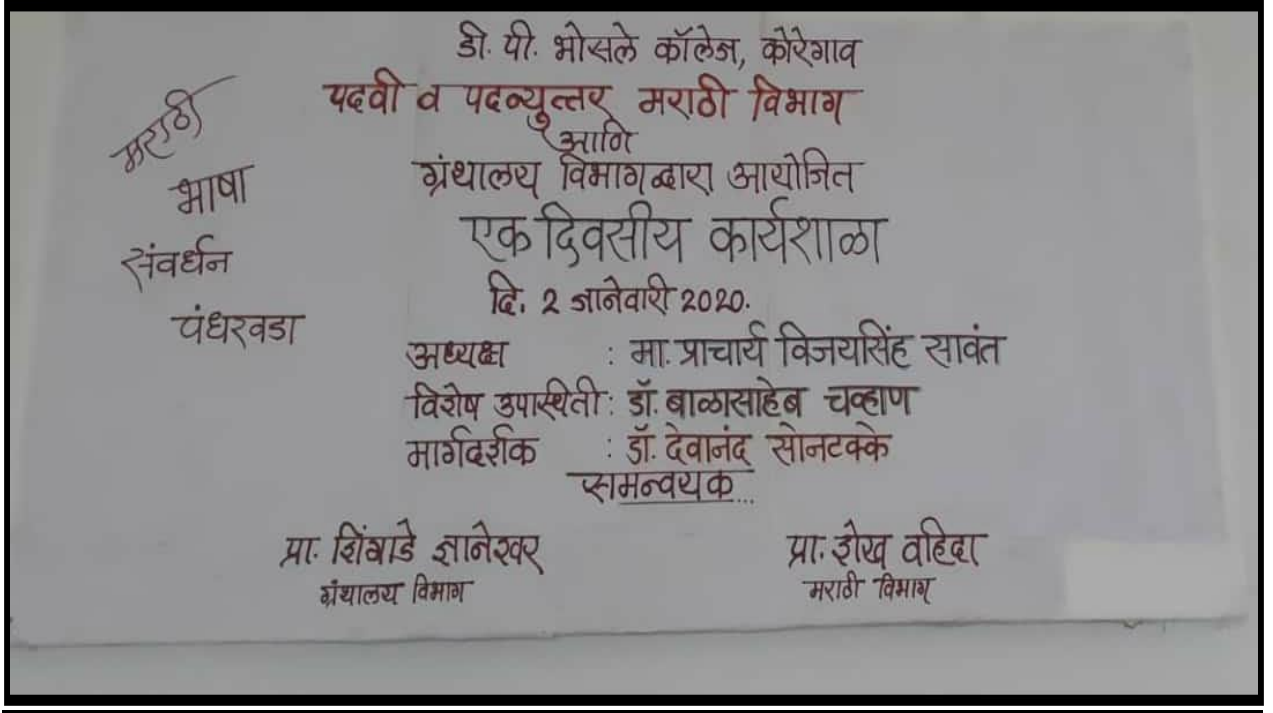 डी. पी. भोसले कॉलेज, कोरेगाव
पदवी व पदव्युत्तर मराठी विभाग
आणि
ग्रंथालय विभागद्वारा आयोजित
एक दिवसीय कार्यशाळा
दि. 2 जानेवारी 2020.
मराठी
भाषा
संवर्धन
पंधरवडा
अध्यक्ष : मा. प्राचार्य विजयसिंह सावंत
विशेष उपास्थिती : डॉ. बाळासाहेब चव्हाण
मार्गदर्शक : डॉ. देवानंद सोनटक्के
समन्वयक...
प्रा. शिंगाडे ज्ञानेश्वर
ग्रंथालय विभाग
प्रा. शेख वहिदा
मराठी विभाग